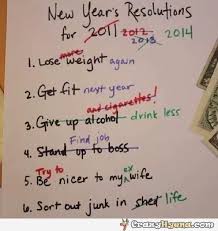 New Year's Resolutions
for 2011 2012 2013 2014
1. Lose more weight again
2. Get fit next year
and cigarettes!
3. Give up alcohol drink less
Find job
4. Stand up to boss
Try to ex
5. Be nicer to my wife
6. Sort out junk in shed life
CrazyHyena.com